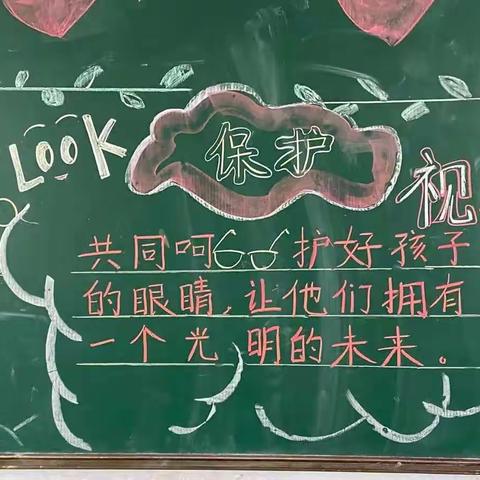 LOOK
保护
视
共同呵护好孩子
的眼睛,让他们拥有
一个光明的未来。